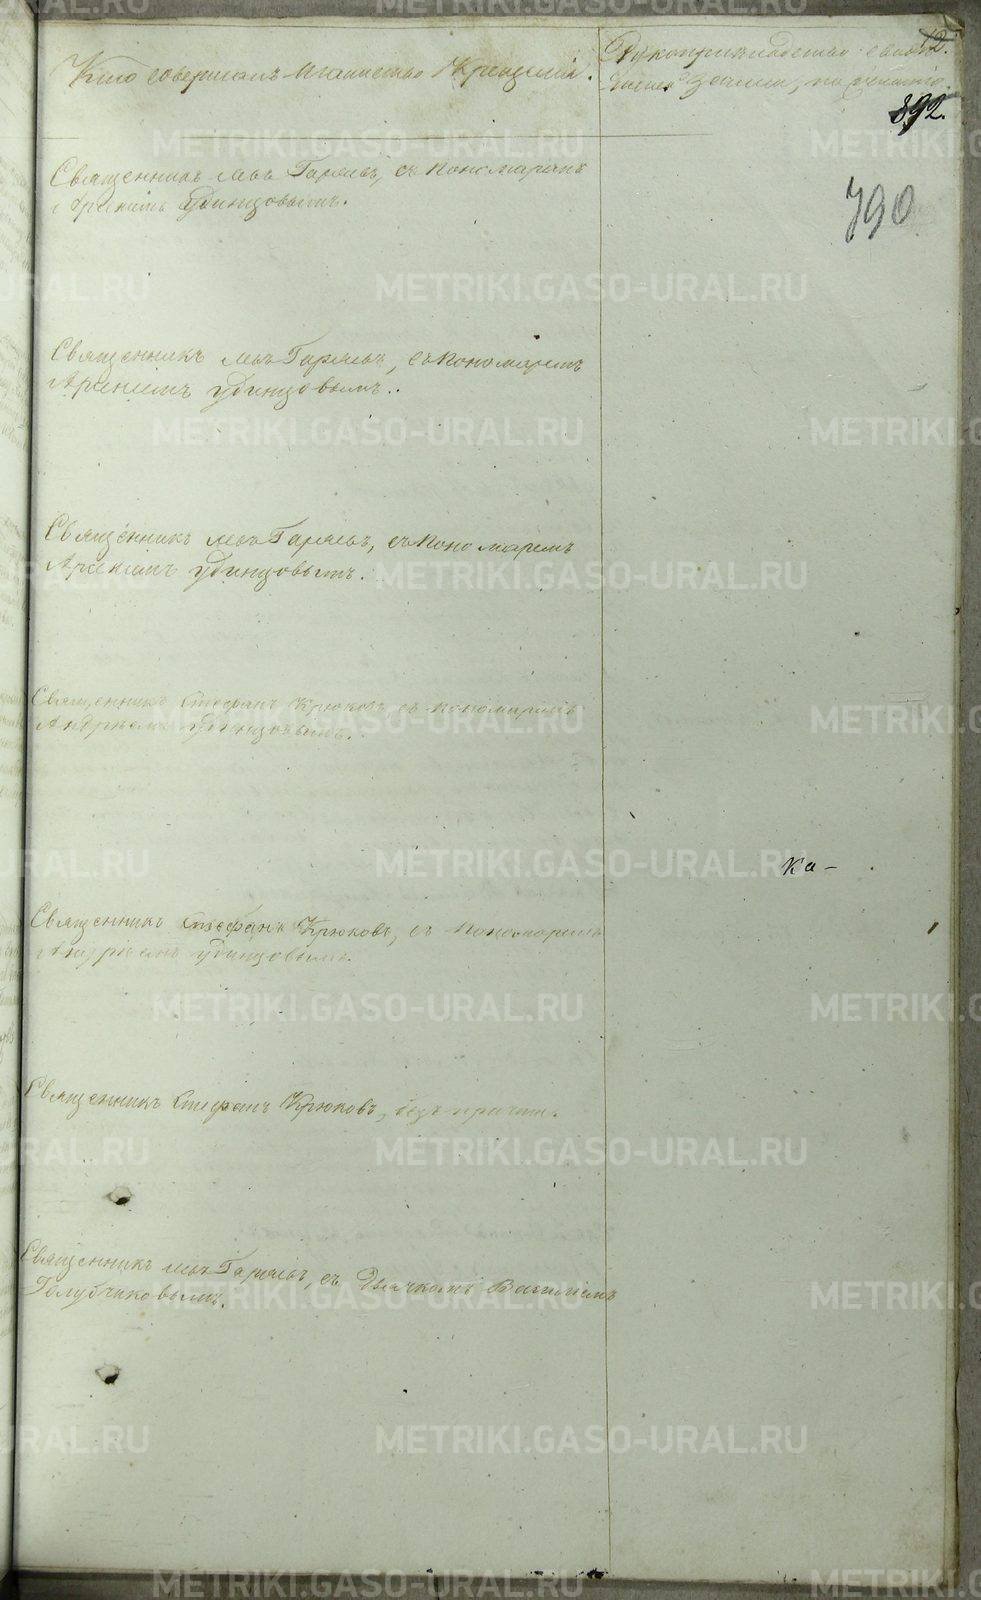 Кто совершалъ таинство Крещенія.
Рукоприкладство свидѣ-
записи, по желанію.
2.
892.
790
Священникъ Левъ Гаряевъ, съ Пономаремъ
Арсеніемъ Удинцовымъ.
Священникъ Левъ Гаряевъ, съ Пономаремъ
Арсеніемъ Удинцовымъ.
Священникъ Левъ Гаряевъ, съ Пономаремъ
Арсеніемъ Удинцовымъ.
Священникъ Стефанъ Крюковъ, съ пономаремъ
Андреемъ Удинцовымъ.
Ка-
Священникъ Стефанъ Крюковъ, съ пономаремъ
Андреемъ Удинцовымъ.
Священникъ Стефанъ Крюковъ, безъ причта.
Священникъ Левъ Гаряевъ, съ Дьячкомъ Василіемъ
Голубчиковымъ.
METRIKI.GASO-URAL.RU